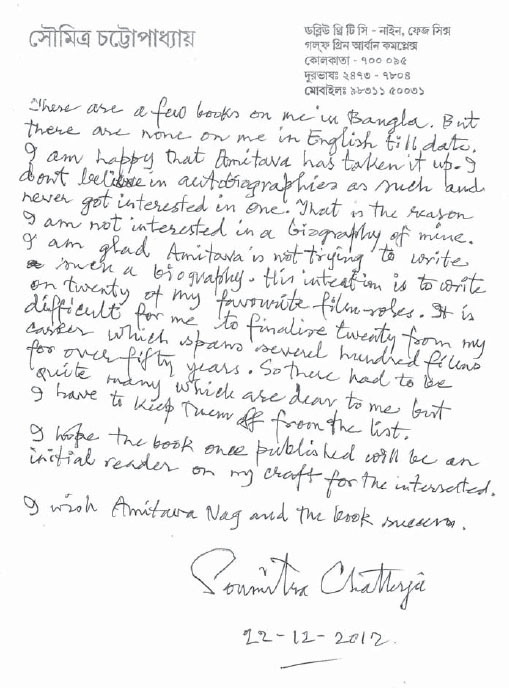 সৌমিত্র চট্টোপাধ্যায়
ডব্লিউ থ্রি টি সি - নাইন, ফেজ সিক্স
গলফ গ্রিন আর্বান কমপ্লেক্স
কোলকাতা - ৭০০ ০৯৫
দূরভাষঃ ২৪৭৩ - ৭৮০৪
মোবাইলঃ ৯৮৩১১ ৫০০৩১
There are a few books on me in Bangla. But
there are none on me in English till date.
I am happy that Amitava has taken it up. I
dont believe in autobiographies as such and
never got interested in one. That is the reason
I am not interested in a biography of mine.
I am glad Amitava is not trying to write
such a biography. His intention is to write
on twenty of my favourite film-roles. It is
difficult for me to finalise twenty from my
career which spans several hundred films
for over fifty years. So there had to be
quite many which are dear to me but
I have to keep them off from the list.
I hope the book once published will be an
initial reader on my craft for the interested.
I wish Amitava Nag and the book success.
Soumitra Chatterje
22-12-2012.